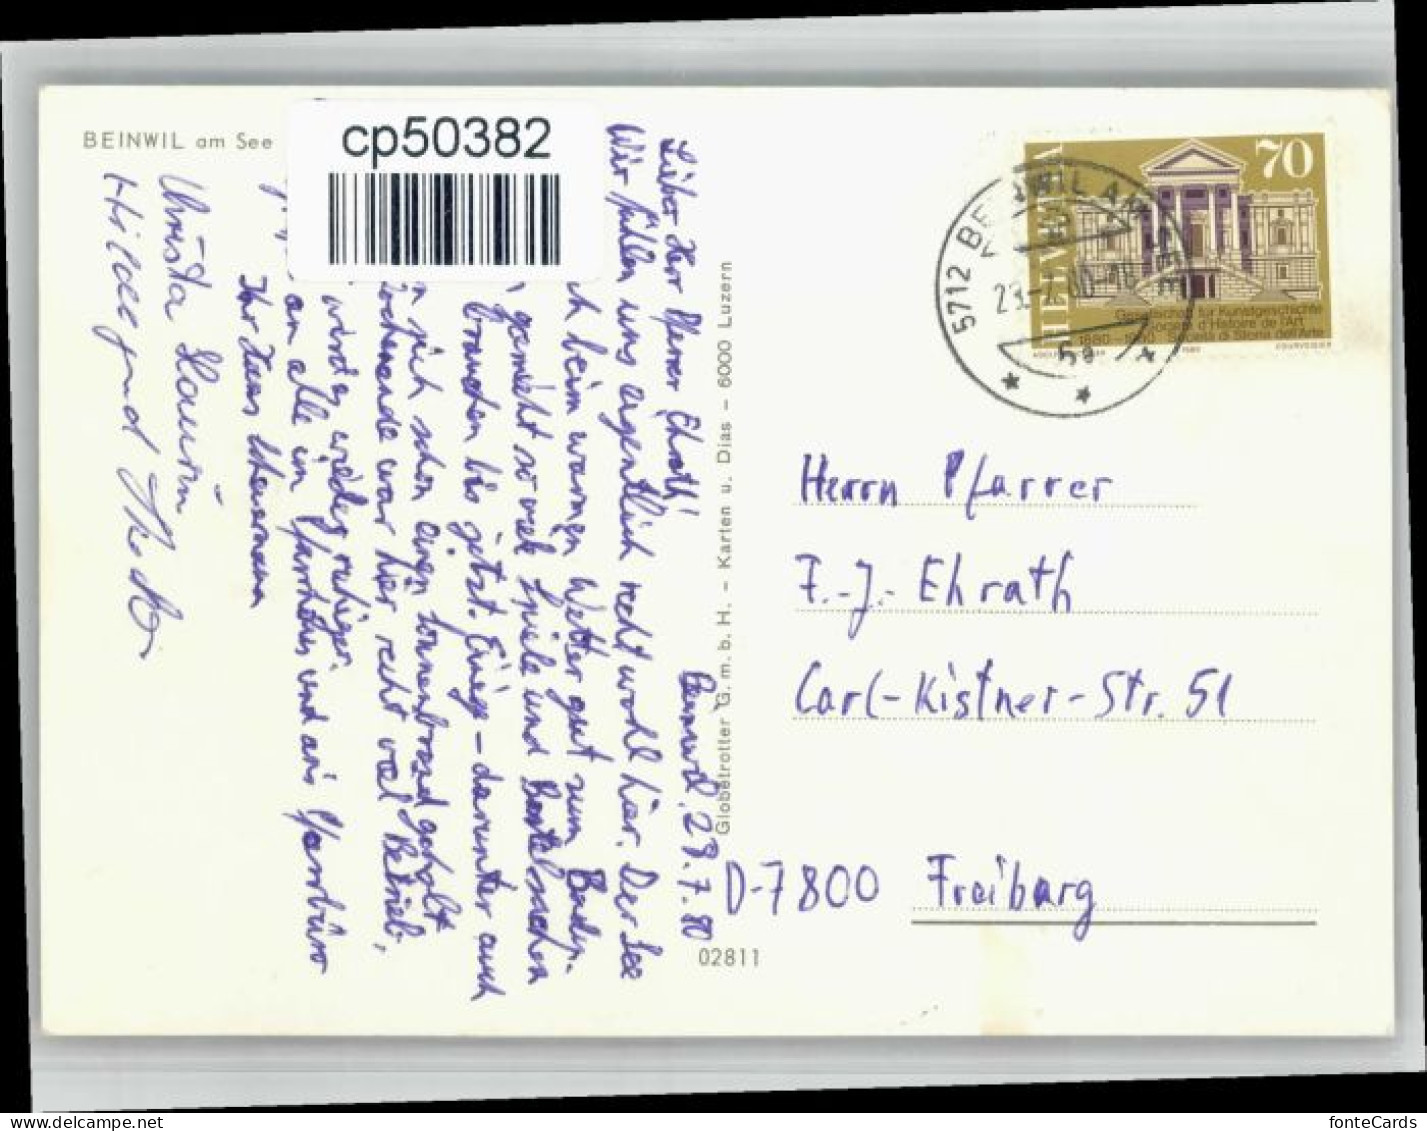 BEINWIL am See
cp50382
Beinwil, 28.7.80
Lieber Herr Pfarrer Ehrath!
Wir fühlen uns eigentlich recht wohl hier. Der See
beim warmen Wetter gut zum Baden.
gemischt so viel Spiele und Bastelsachen
brauchen bis jetzt. Einige - darunter auch
sich schon einen Sonnenbrand geholt
Wochenende war hier recht viel Betrieb,
wieder ruhiger.
an alle im Pfarrhaus und ans Pfarrbüro
Ihr Hans
Christa
Hildegund
Globetrotter G. m. b. H. – Karten u. Dias – 6000 Luzern
02811
HELVETIA
70
Gesellschaft für Kunstgeschichte
Société d'Histoire de l'Art
Società di Storia dell'Arte
1880-1980
COURVOISIER
5712 BEINWIL AM SEE
5a
Herrn Pfarrer
F.-J. Ehrath
Carl-Kistner-Str. 51
D-7800 Freiburg
www.delcampe.net
fonteCards